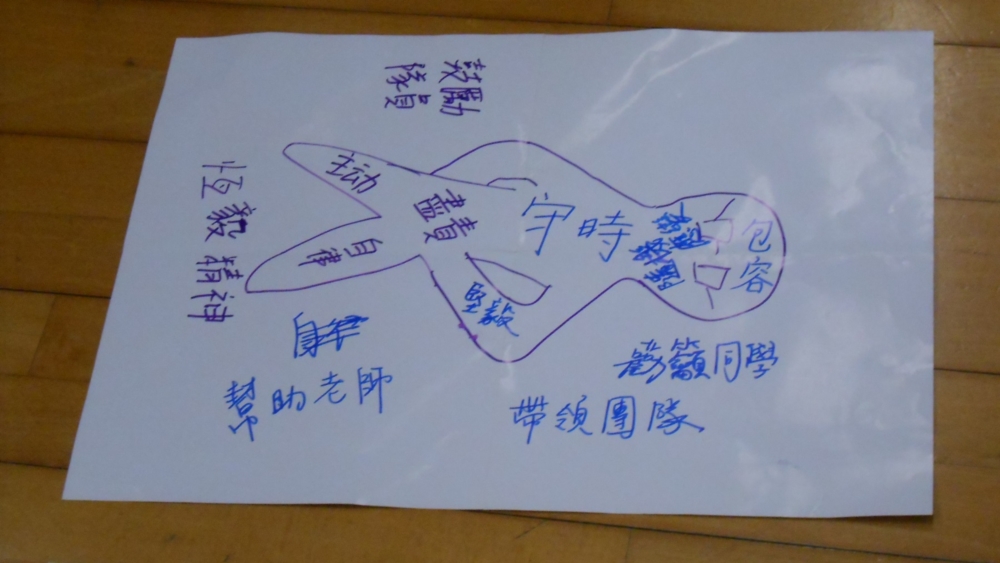 鼓勵
隊員
恆毅精神
主动
自律
盡責
守時
堅毅
包容
幫助老師
勸籲同學
帶領團隊